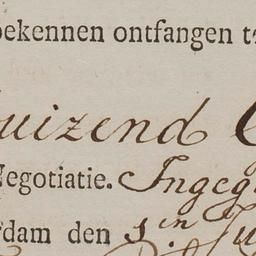 bekennen ontfangen t
uizend
Negotiatie. Ingeg
dam den 1.en Ju